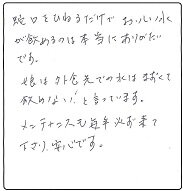 蛇口をひねるだけでおいしい水
が飲めるのは本当にありがたい
です。
娘は外食先での水はまずくて
飲めない!と言っています。
メンテナンスも毎年必ず来て
下さり、安心です。